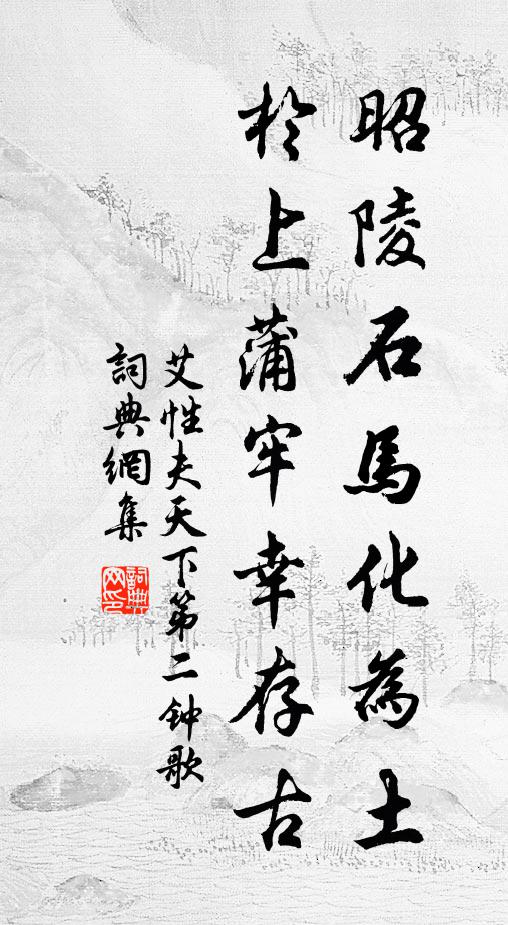 昭陵石馬化為土
於上蒲牢幸存古
艾性夫天下第二钟歌
詞典網集
詞典网印